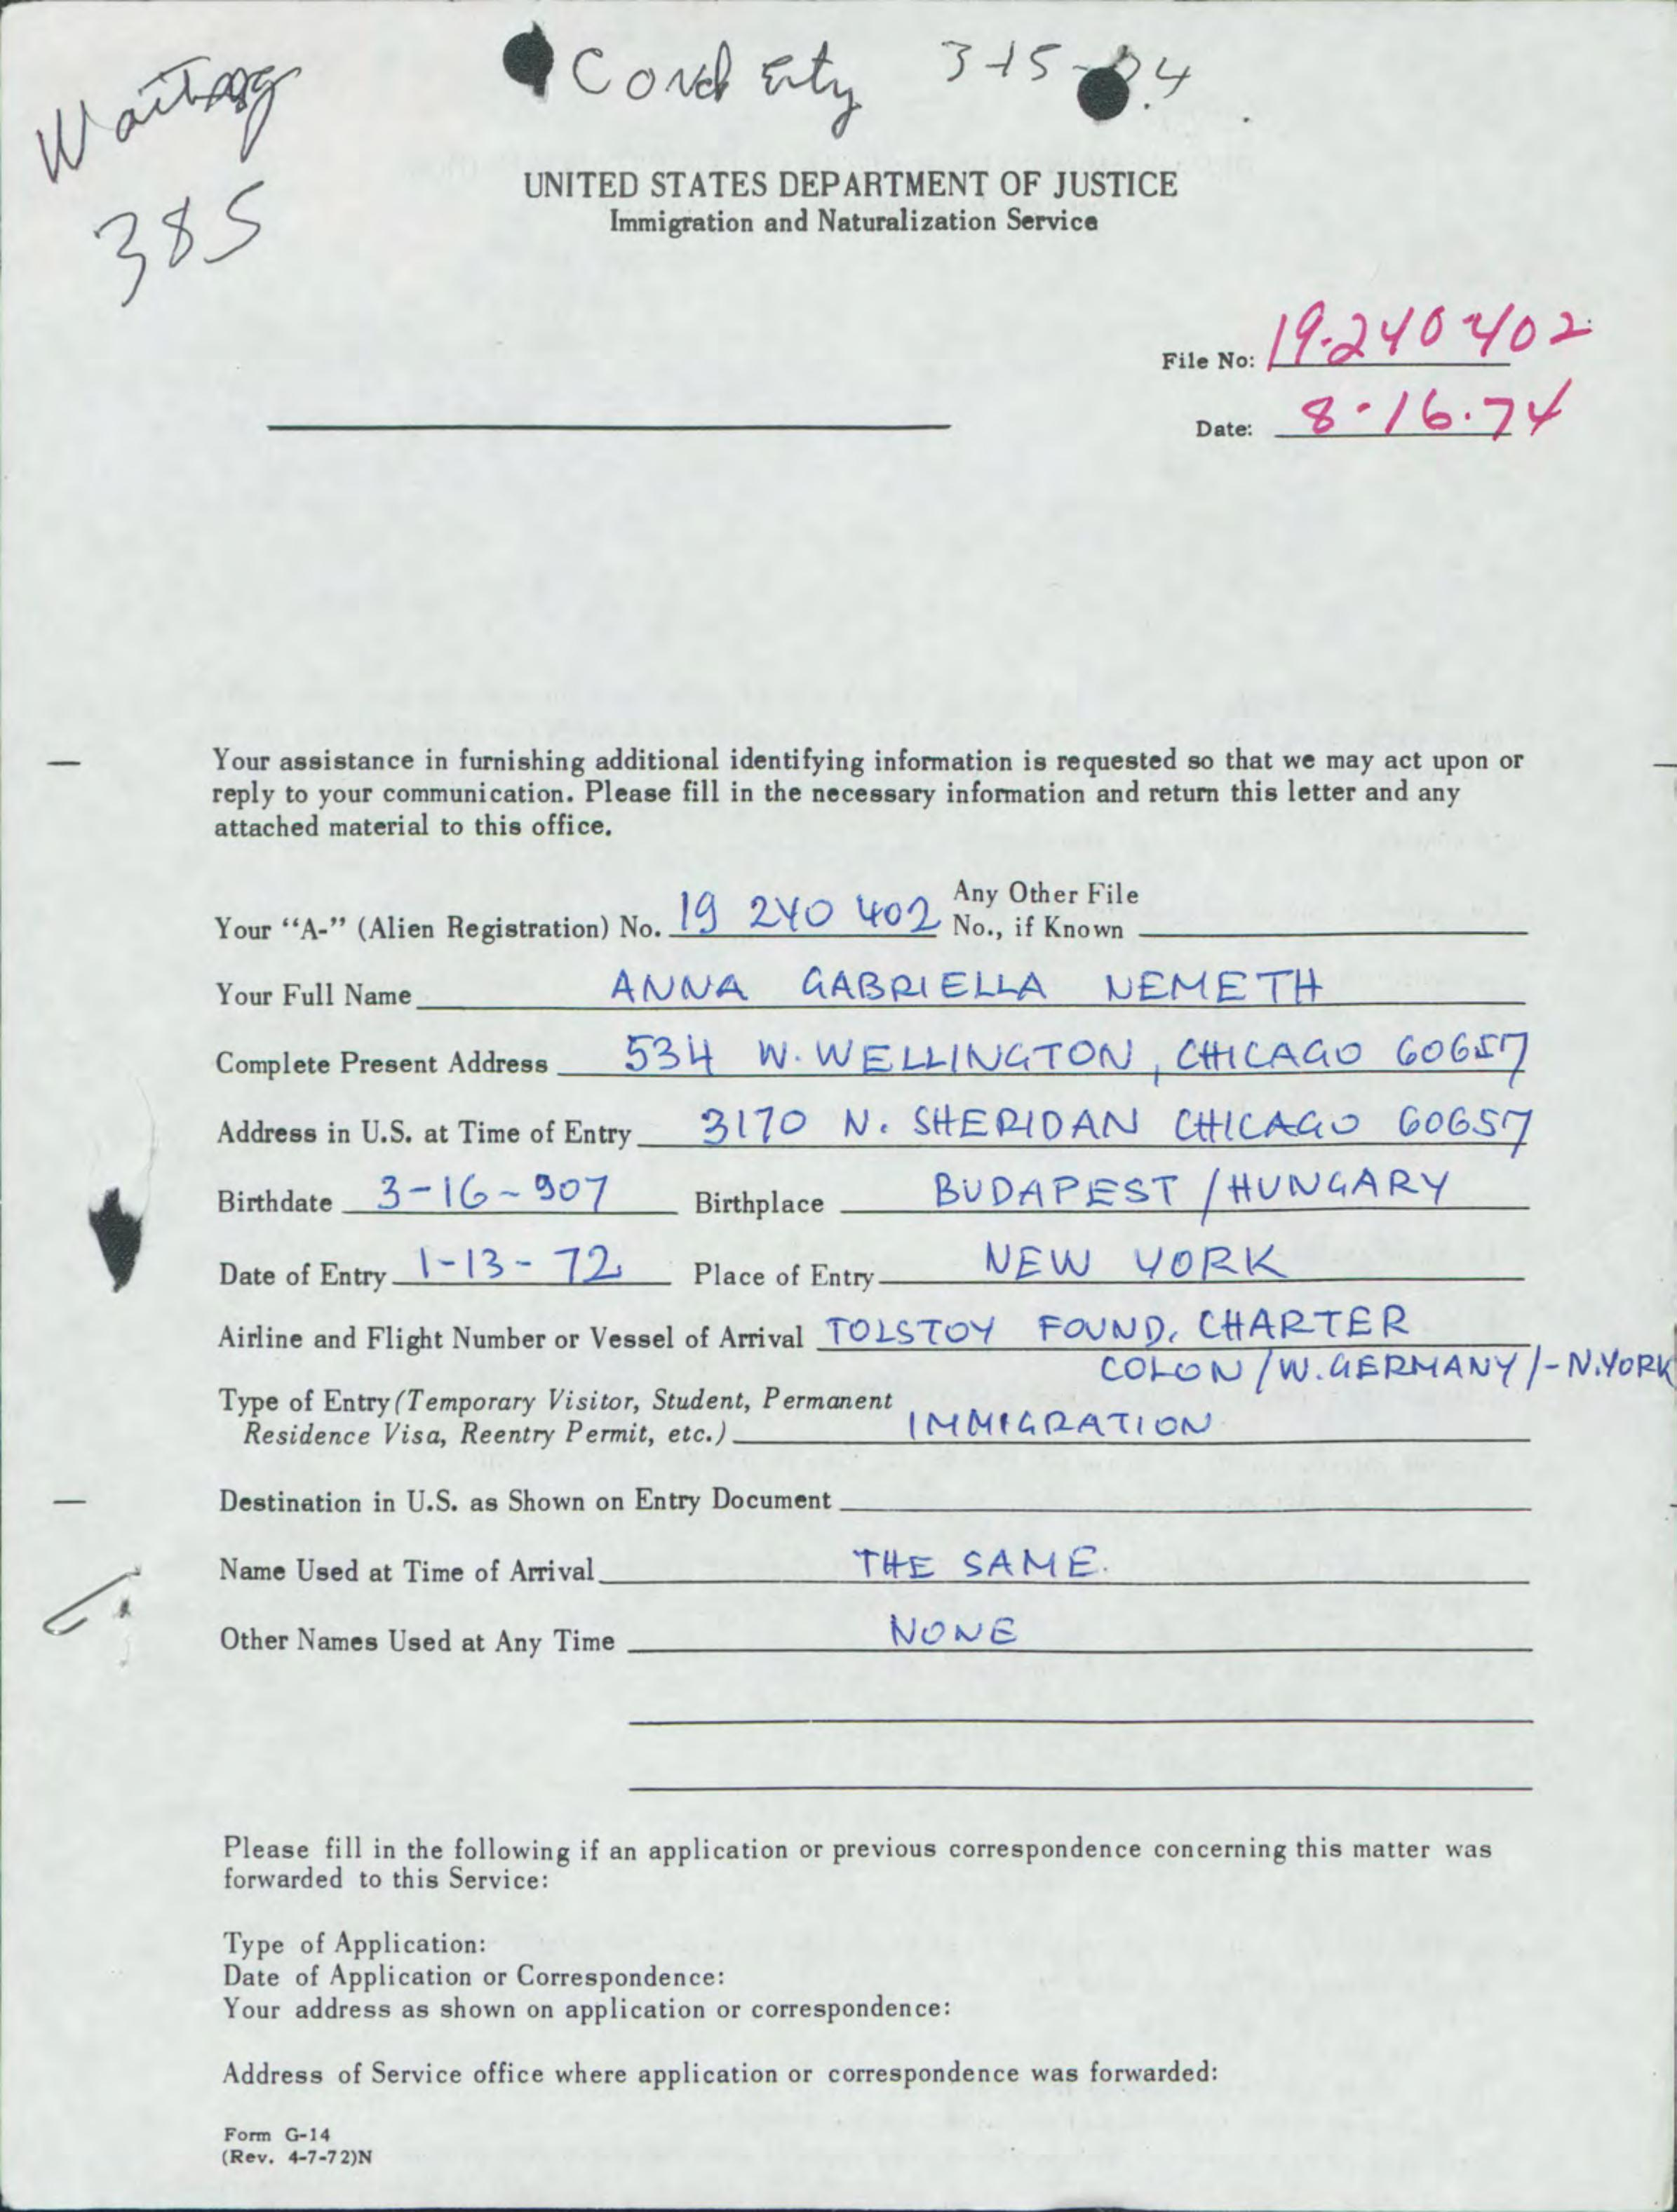 Waiting
385
Cond Enty 3-15-74
UNITED STATES DEPARTMENT OF JUSTICE
Immigration and Naturalization Service
File No: 19-240 402
Date: 8-16-74
Your assistance in furnishing additional identifying information is requested so that we may act upon or
reply to your communication. Please fill in the necessary information and return this letter and any
attached material to this office.
Your “A-” (Alien Registration) No. 19 240 402 Any Other File
No., if Known
Your Full Name ANNA GABRIELLA NEMETH
Complete Present Address 534 W. WELLINGTON, CHICAGO 60657
Address in U.S. at Time of Entry 3170 N. SHERIDAN CHICAGO 60657
Birthdate 3-16-907 Birthplace BUDAPEST / HUNGARY
Date of Entry 1-13-72 Place of Entry NEW YORK
Airline and Flight Number or Vessel of Arrival TOLSTOY FOUND. CHARTER
COLON /W. GERMANY/-N.YORK
Type of Entry (Temporary Visitor, Student, Permanent
Residence Visa, Reentry Permit, etc.) IMMIGRATION
Destination in U.S. as Shown on Entry Document
Name Used at Time of Arrival THE SAME.
Other Names Used at Any Time NONE
Please fill in the following if an application or previous correspondence concerning this matter was
forwarded to this Service:
Type of Application:
Date of Application or Correspondence:
Your address as shown on application or correspondence:
Address of Service office where application or correspondence was forwarded:
Form G-14
(Rev. 4-7-72)N